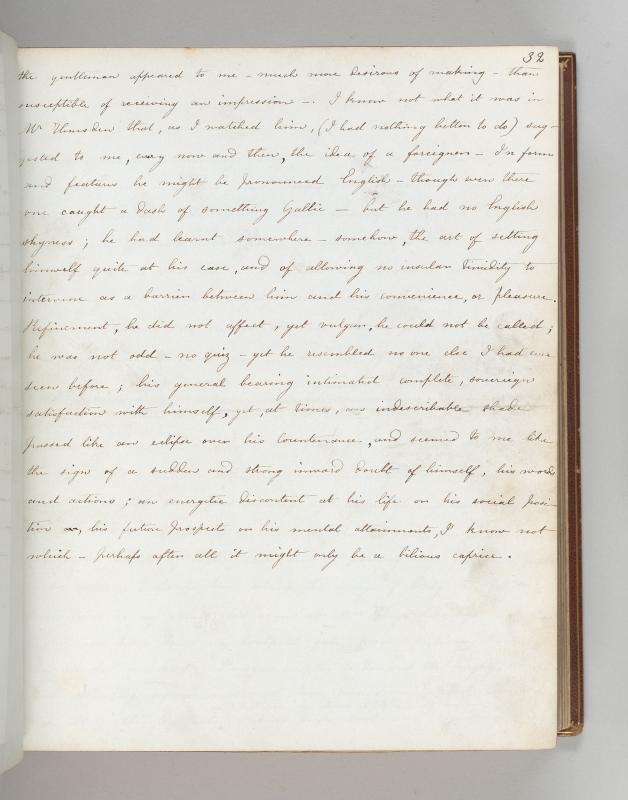 32
the gentleman appeared to me – much more desirous of making – than
susceptible of receiving an impression –. I know not what it was in
Mr Hunsden that, as I watched him, (I had nothing better to do) sug-
gested to me, every now and then, the idea of a foreigner – In form
and features he might be pronounced English – though even there
one caught a dash of something Gallic – but he had no English
shyness; he had learnt somewhere – somehow, the art of setting
himself quite at his ease, and of allowing no insular timidity to
intervene as a barrier between him and his convenience, or pleasure.
Refinement, he did not affect, yet vulgar, he could not be called;
he was not odd – no quiz – yet he resembled no one else I had ever
seen before; his general bearing intimated complete, sovereign
satisfaction with himself, yet, at times, an indescribable shade
passed like an eclipse over his Countenance, and seemed to me like
the sign of a sudden and strong inward doubt of himself, his words
and actions; an energetic discontent at his life or his social posi-
tion or, his future prospects or his mental attainments, I know not
which – perhaps after all it might only be a bilious caprice.